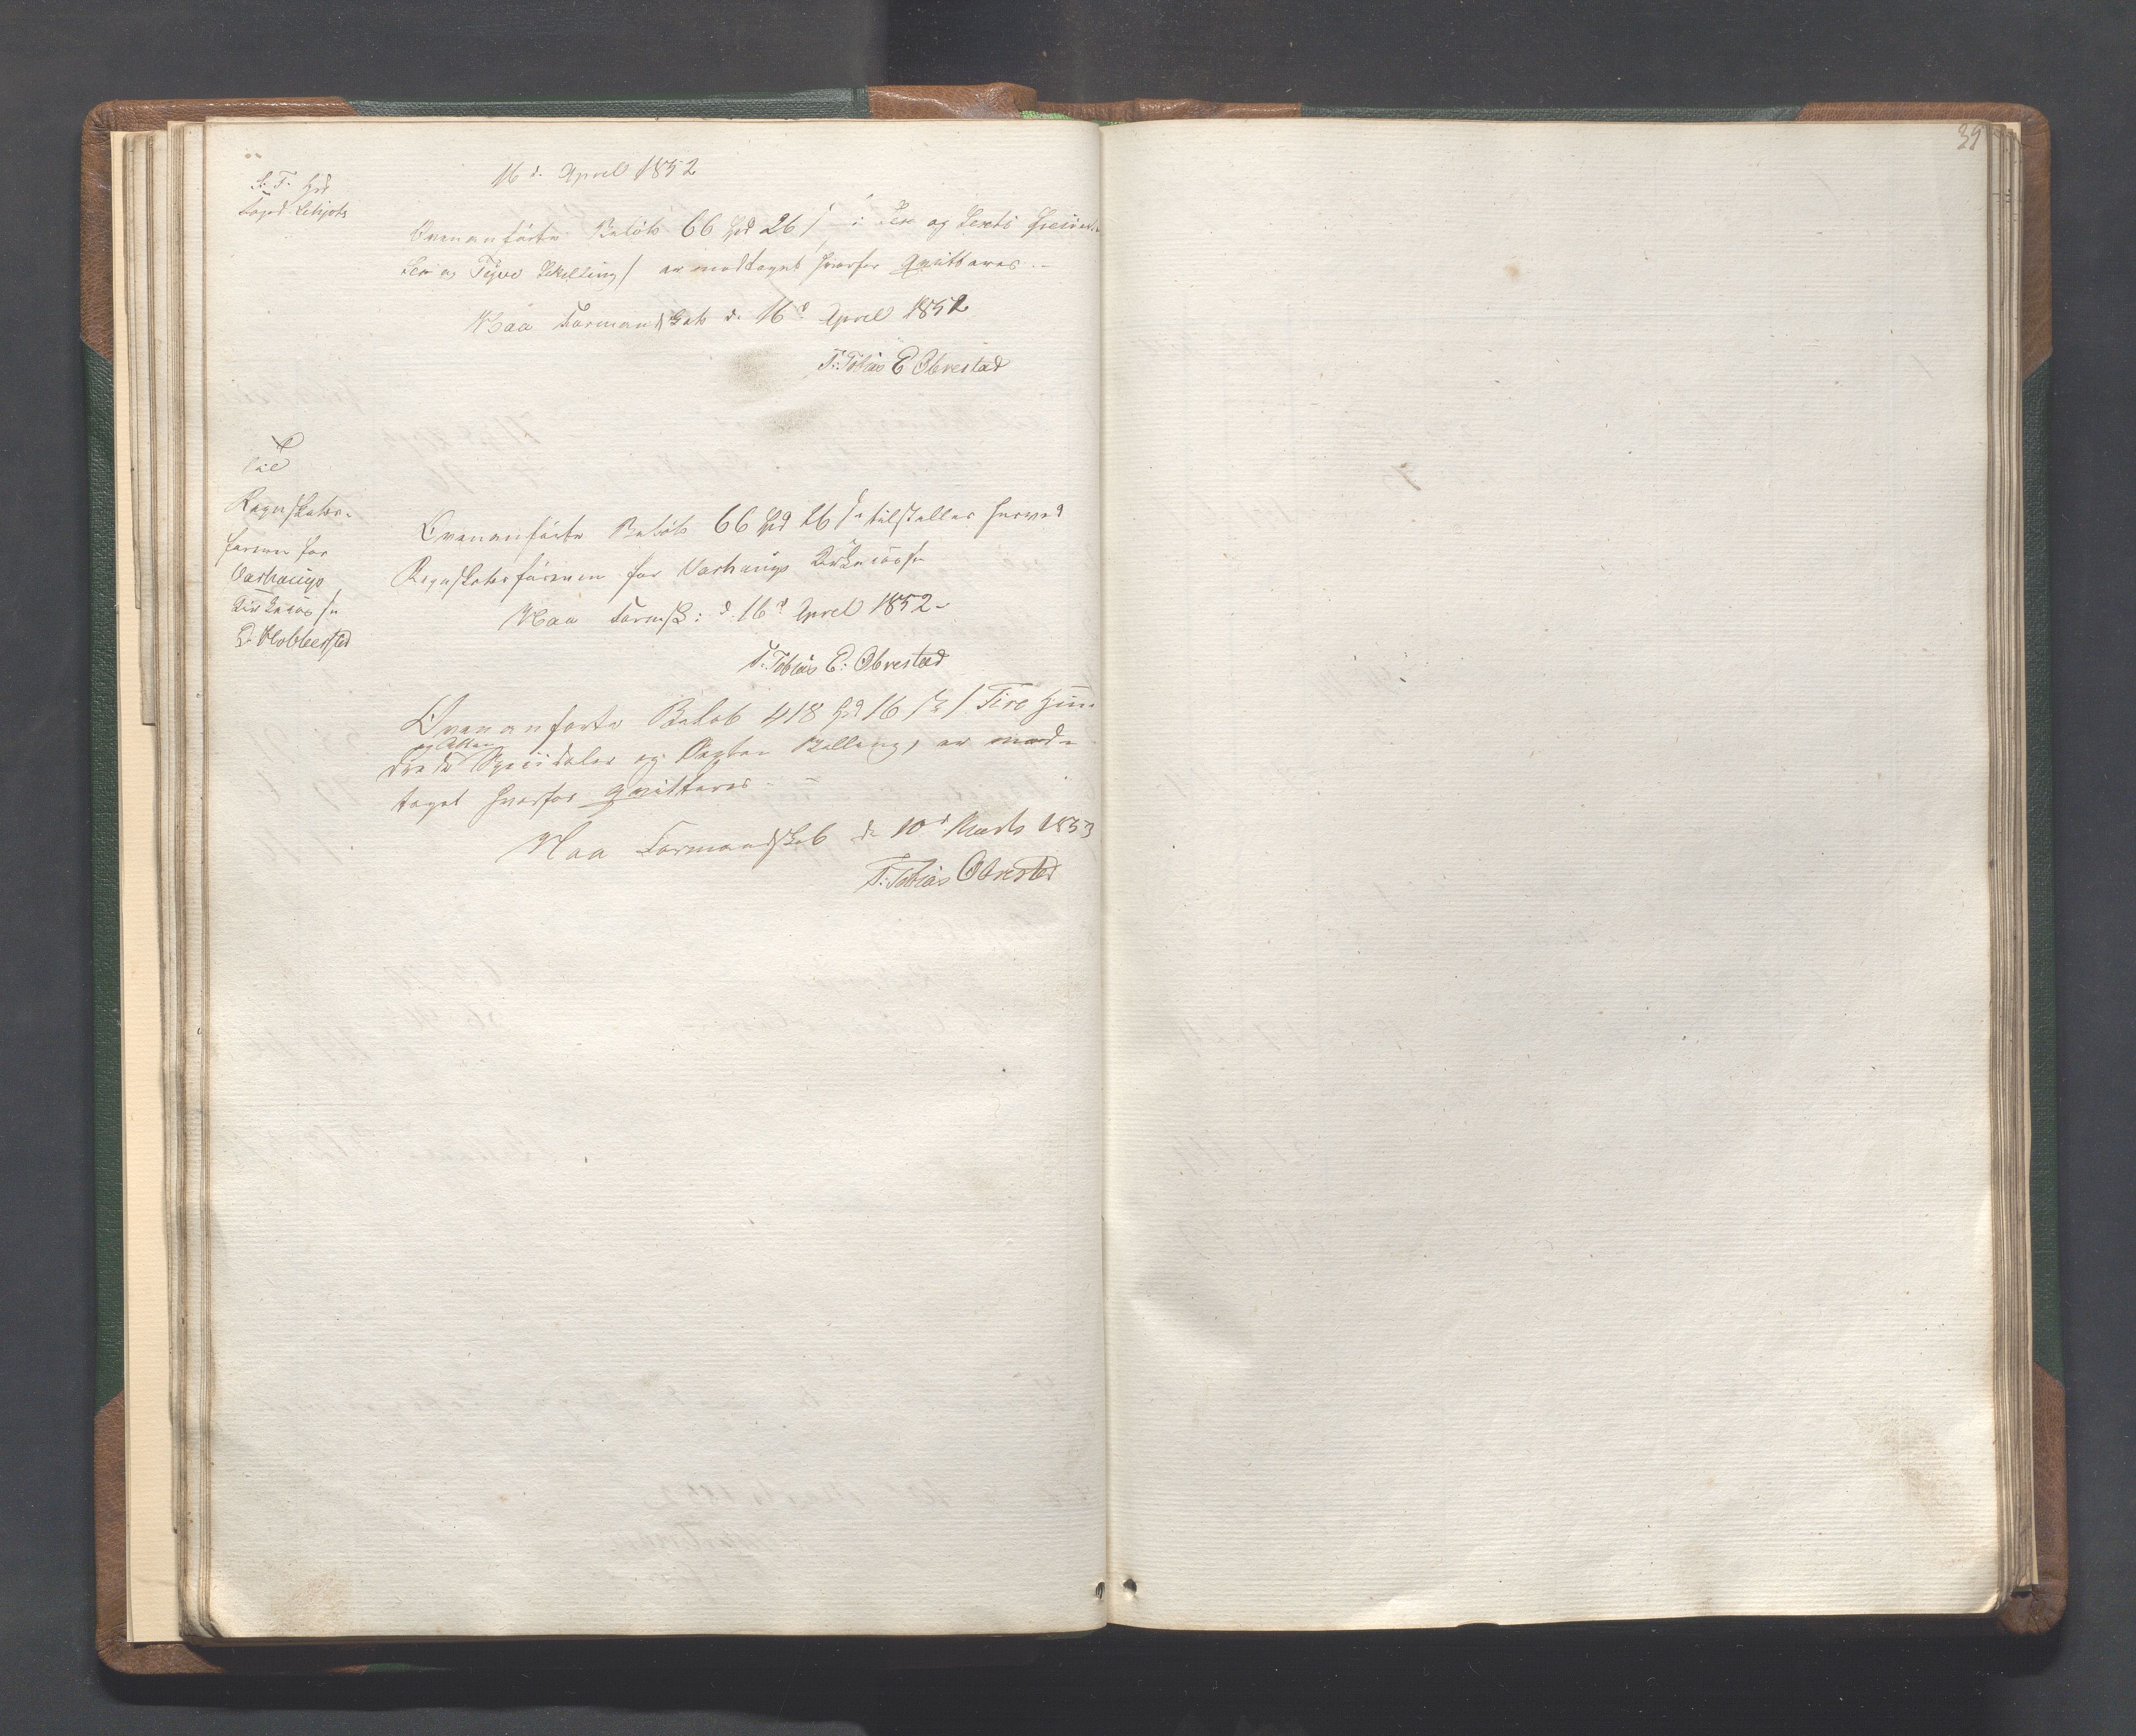 39
S. T. Hrr
Foged Schjøtz
16 d. April 1852
Ovenanförte Belöb 66 Spd 26 s Sex og Sexti Speciedaler
Sex og Tyve Skilling / er modtaget hvorfor qvitteres
Haa Formandskab d. 16d April 1852
T. Tobias E Obrestad
Til
Regnskabs-
føreren for
Varhaugs
Kirkecasse
Ovenanförte Belöb 66 Spd 26 s tilstilles herved
Regnskabsføreren for Varhaugs Kirkecasse
Haa Formsk: d. 16d April 1852
T. Tobias E. Obrestad
Ovenanførte Beløb 418 Spd 16 s / Fire Hun-
og Atten
drede Speciedaler og Sexten Skilling, er mod-
taget hvorfor qvitteres
Haa Formandskab d. 10d Marts 1853
T. Tobias Obrestad